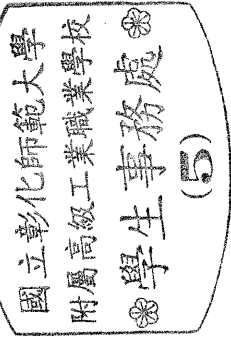 國立彰化師範大學
附屬高級工業職業學校
學生事務處
(5)